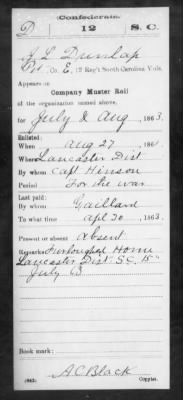 Confederate.
D 12 S.C.
J L Dunlap
Pvt, Co. E, 12 Reg't South Carolina Vols.
Appears on
Company Muster Roll
of the organization named above,
for July & Aug, 1863.
Enlisted:
When Aug 27, 1861
Where Lancaster Dist
By whom Capt Hinson
Period For the war
Last paid:
By whom Gaillard
To what time Apl 30, 1863.
Present or absent Absent
Remarks: Furloughed Home
Lancaster Dist S.C. 15"
July 63
Book mark:
A C Black
(642) Copyist.